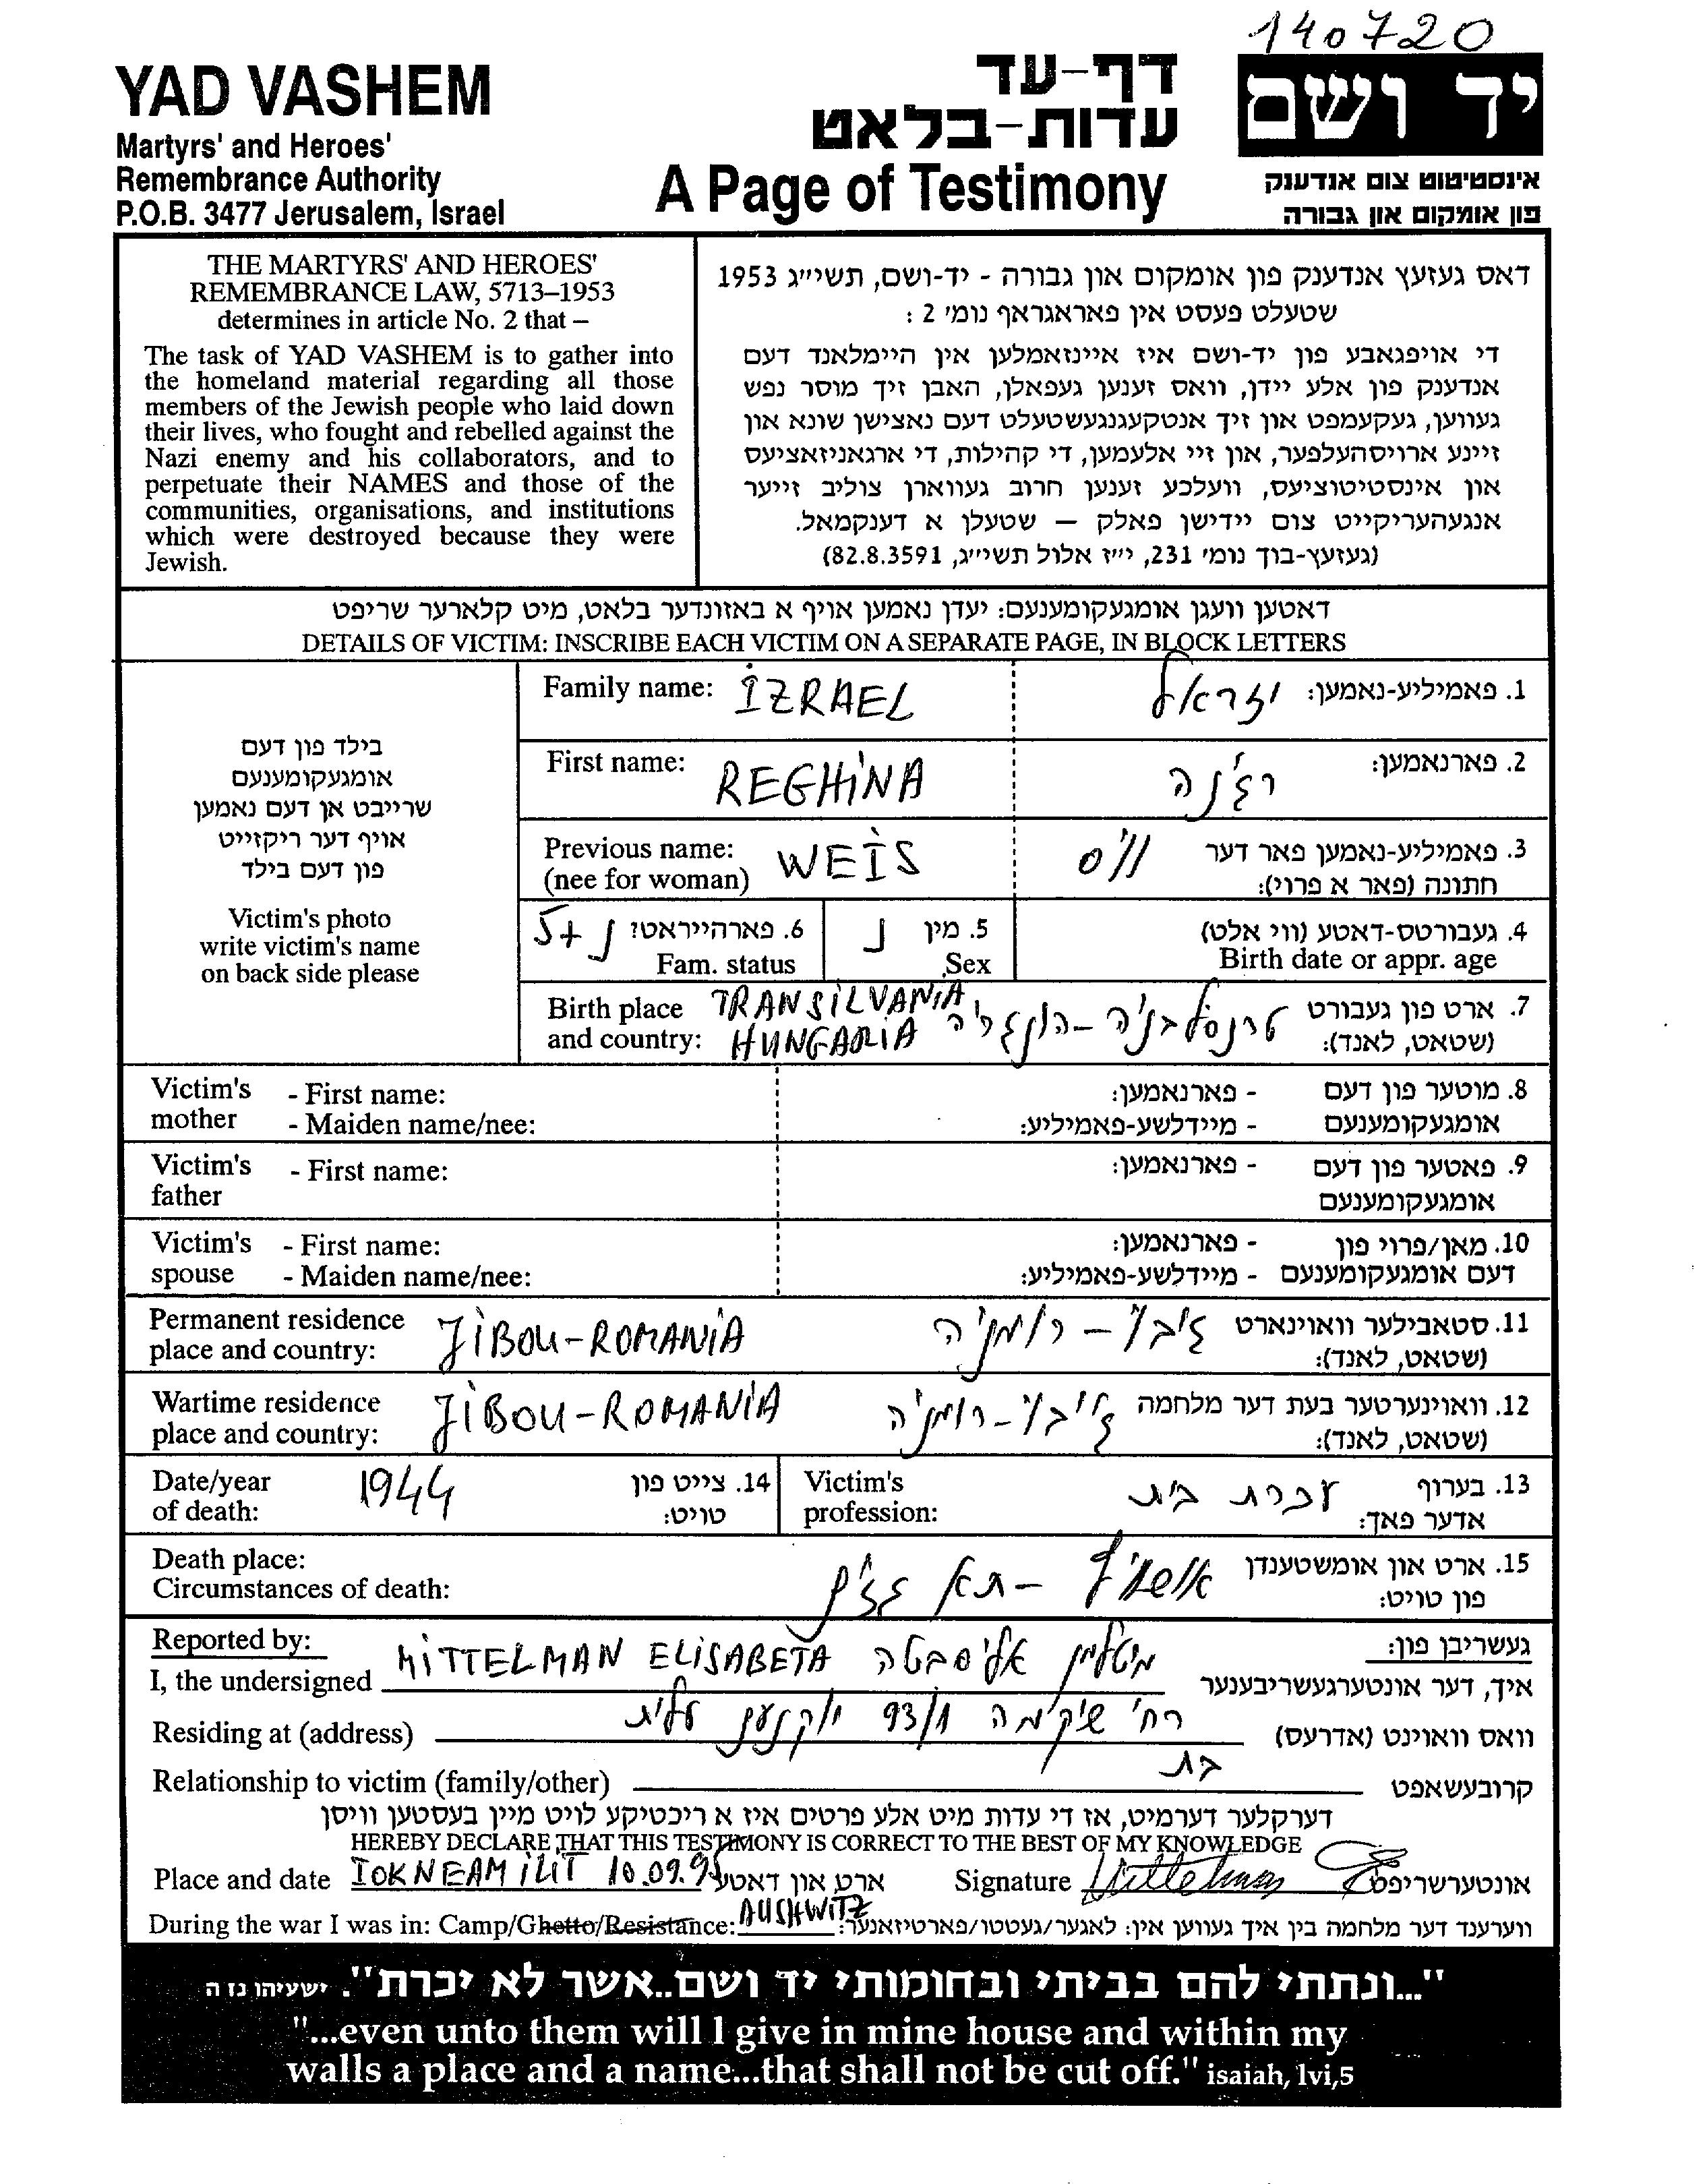 140720
YAD VASHEM
Martyrs' and Heroes'
Remembrance Authority
P.O.B. 3477 Jerusalem, Israel
דף-עד
עדות-בלאט
A Page of Testimony
יד ושם
אינסטיטוט צום אנדענק
פון אומקום און גבורה
THE MARTYRS' AND HEROES'
REMEMBRANCE LAW, 5713–1953
determines in article No. 2 that –
The task of YAD VASHEM is to gather into
the homeland material regarding all those
members of the Jewish people who laid down
their lives, who fought and rebelled against the
Nazi enemy and his collaborators, and to
perpetuate their NAMES and those of the
communities, organisations, and institutions
which were destroyed because they were
Jewish.
דאס געזעץ אנדענק פון אומקום און גבורה - יד-ושם, תשי״ג 1953
שטעלט פעסט אין פאראגראף נומ׳ 2 :
די אויפגאבע פון יד-ושם איז איינזאמלען אין היימלאנד דעם
אנדענק פון אלע יידן, וואס זענען געפאלן, האבן זיך מוסר נפש
געווען, געקעמפט און זיך אנטקעגנגעשטעלט דעם נאצישן שונא און
זיינע ארויסהעלפער, און זיי אלעמען, די קהילות, די ארגאניזאציעס
און אינסטיטוציעס, וועלכע זענען חרוב געווארן צוליב זייער
אנגעהעריקייט צום יידישן פאלק — שטעלן א דענקמאל.
(געזעץ-בוך נומ׳ 231, י״ז אלול תשי״ג, 82.8.3591)
דאטען וועגן אומגעקומענעם: יעדן נאמען אויף א באזונדער בלאט, מיט קלארער שריפט
DETAILS OF VICTIM: INSCRIBE EACH VICTIM ON A SEPARATE PAGE, IN BLOCK LETTERS
בילד פון דעם
אומגעקומענעם
שרייבט אן דעם נאמען
אויף דער ריקזייט
פון דעם בילד
Victim's photo
write victim's name
on back side please
Family name: IZRAEL יזראל 1. פאמיליע-נאמען:
First name: REGHINA רג'נה 2. פארנאמען:
Previous name: WEIS וויס 3. פאמיליע-נאמען פאר דער
(nee for woman) חתונה (פאר א פרוי):
5+נ 6. פארהייראט? נ 5. מין 4. געבורטס-דאטע (ווי אלט)
Fam. status Sex Birth date or appr. age
Birth place TRANSILVANIA טרנסלבניה - הונגריה 7. ארט פון געבורט
and country: HUNGARIA (שטאט, לאנד):
Victim's - First name: - פארנאמען: 8. מוטער פון דעם
mother - Maiden name/nee: - מיידלשע-פאמיליע: אומגעקומענעם
Victim's - First name: - פארנאמען: 9. פאטער פון דעם
father אומגעקומענעם
Victim's - First name: - פארנאמען: 10. מאן/פרוי פון
spouse - Maiden name/nee: - מיידלשע-פאמיליע: דעם אומגעקומענעם
Permanent residence JIBOU-ROMANIA ז'יבו - רומניה 11. סטאבילער וואוינארט
place and country: (שטאט, לאנד):
Wartime residence JIBOU-ROMANIA ז'יבו - רומניה 12. וואוינערטער בעת דער מלחמה
place and country: (שטאט, לאנד):
Date/year 1944 14. צייט פון Victim's עקרת בית 13. בערוף
of death: טויט: profession: אדער פאך:
Death place: אושוויץ - תא גזים 15. ארט און אומשטענדן
Circumstances of death: פון טויט:
Reported by: געשריבן פון:
I, the undersigned MITTELMAN ELISABETA מיטלמן אליסבטה איך, דער אונטערגעשריבענער
Residing at (address) רח' שיקמה 93/1 יוקנעם עלית וואס וואוינט (אדרעס)
Relationship to victim (family/other) בת קרובעשאפט
דערקלער דערמיט, אז די עדות מיט אלע פרטים איז א ריכטיקע לויט מיין בעסטען וויסן
HEREBY DECLARE THAT THIS TESTIMONY IS CORRECT TO THE BEST OF MY KNOWLEDGE
Place and date IOKNEAM ILIT 10.09.95 ארט און דאטע Signature Mittelman אונטערשריפט
During the war I was in: Camp/Ghetto/Resistance: AUSHWITZ ווערענד דער מלחמה בין איך געווען אין: לאגער/געטטו/פארטיזאנער:
"...ונתתי להם בביתי ובחומותי יד ושם..אשר לא יכרת". ישעיהו נז ה
"...even unto them will I give in mine house and within my
walls a place and a name...that shall not be cut off." isaiah, lvi,5